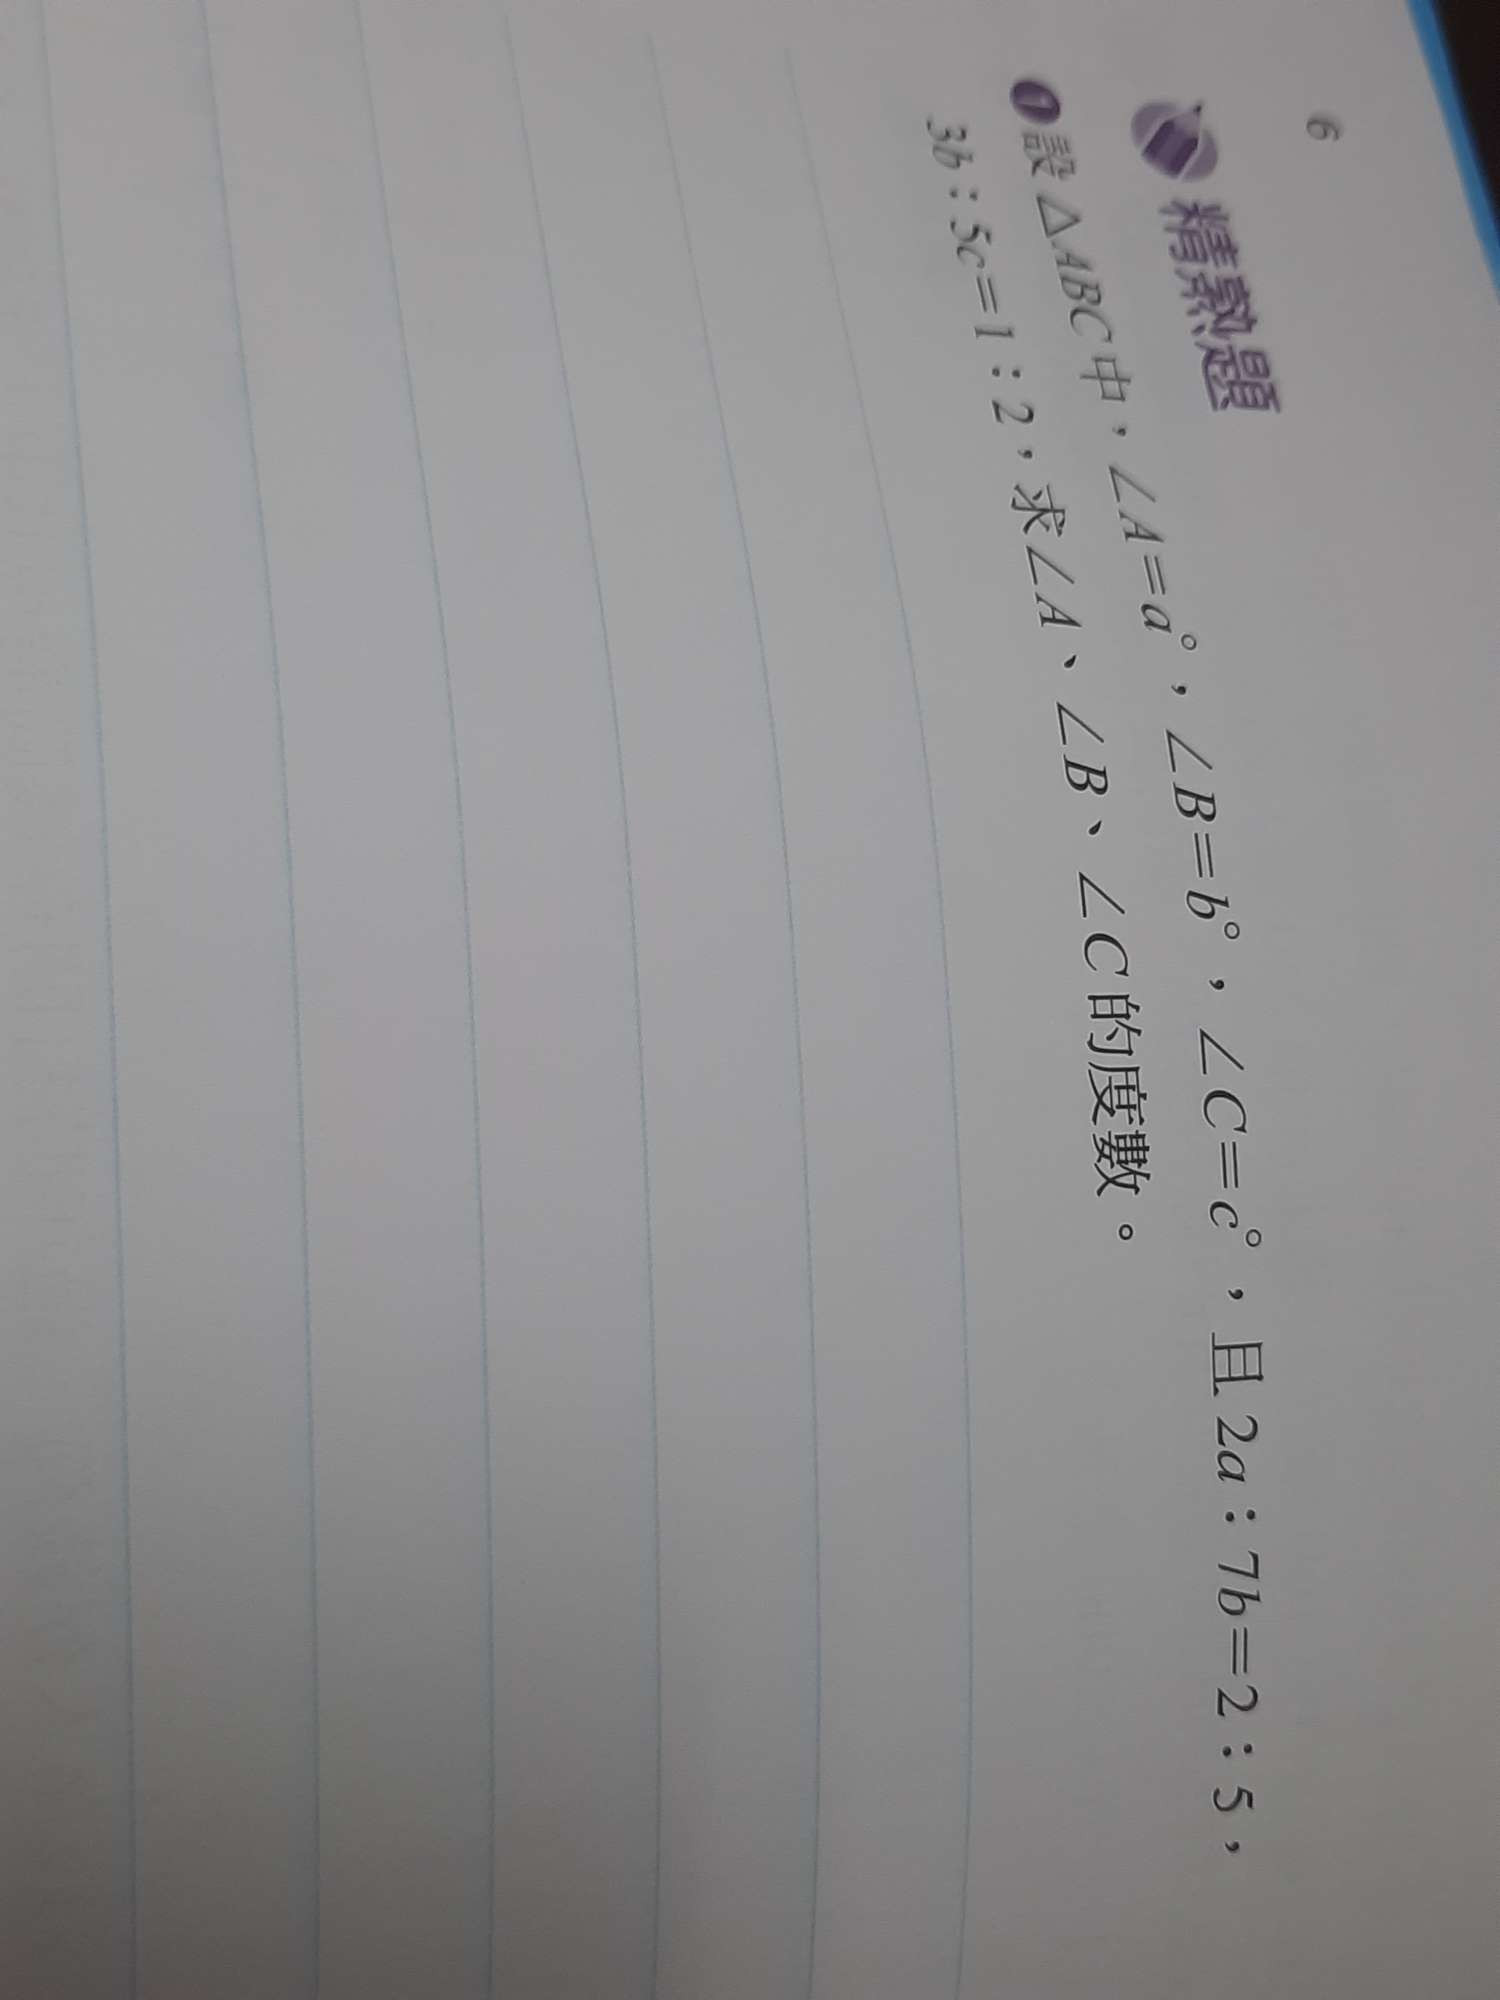 6
精熟題
1 設△ABC中,∠A=a°,∠B=b°,∠C=c°,且2a:7b=2:5,
3b:5c=1:2,求∠A、∠B、∠C的度數。